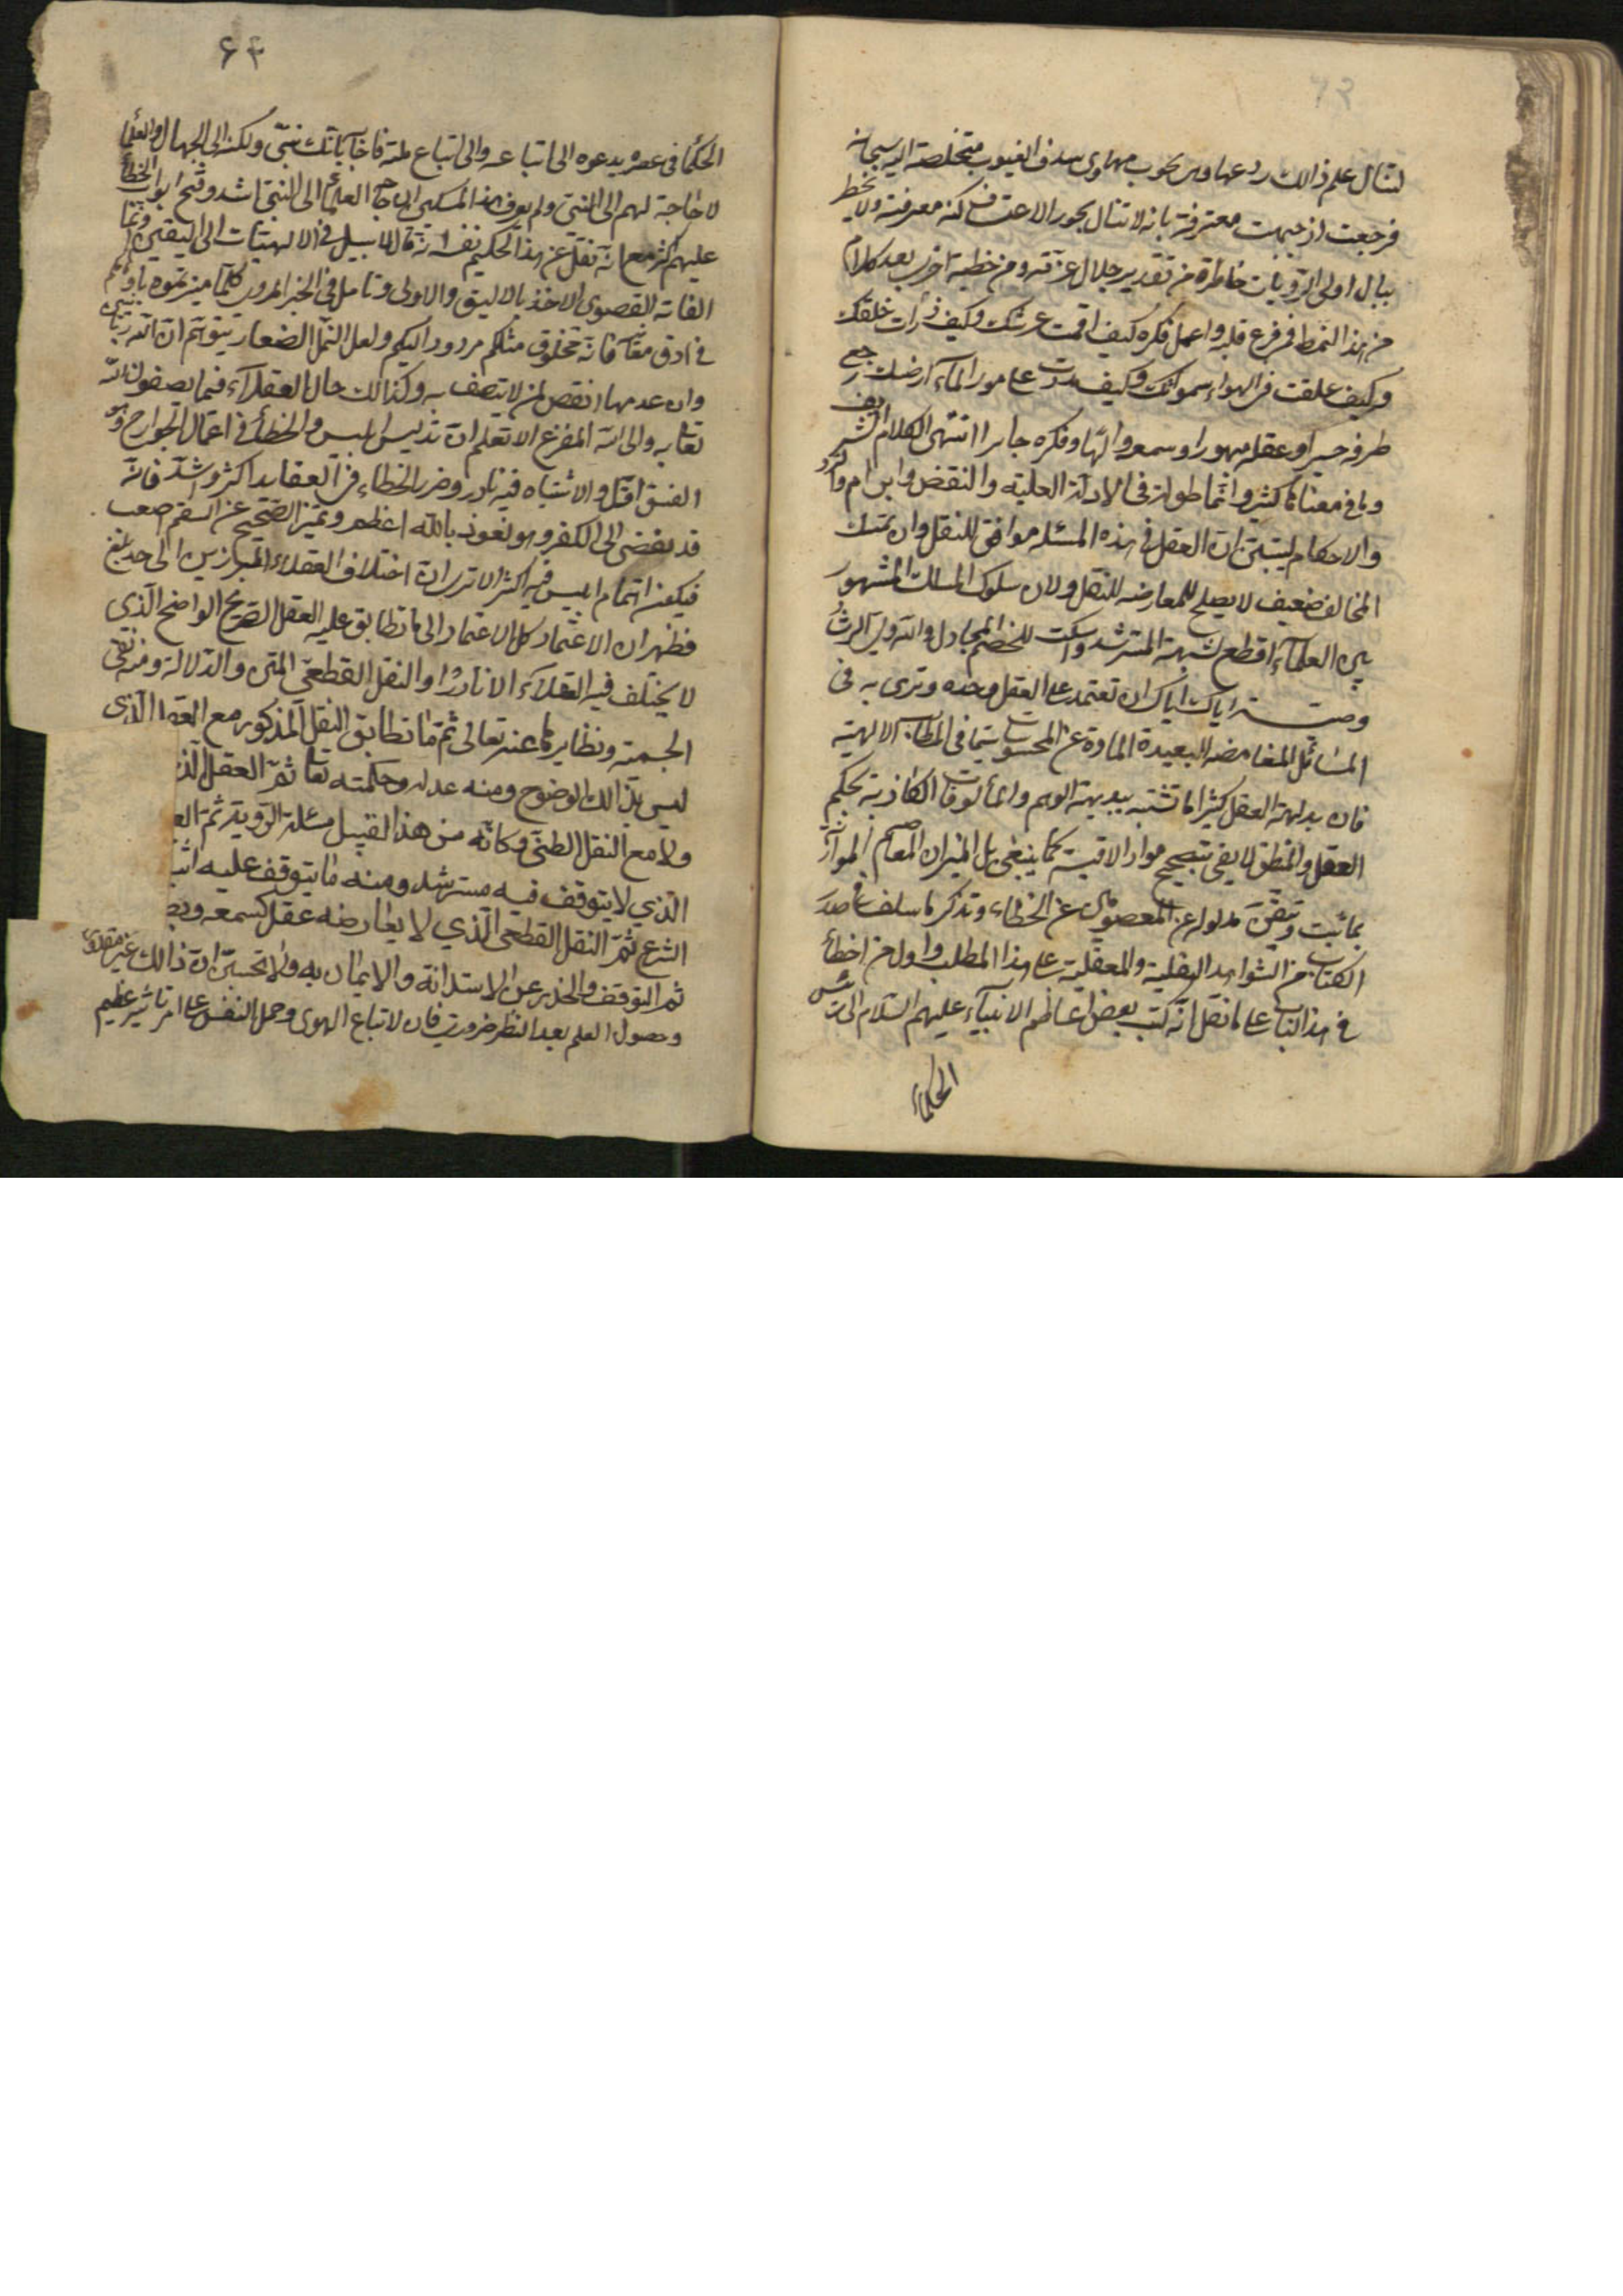 لتنال علم ذالك ردعها وهى تجوب مهاوى سدف الغيوب متخلصة اليه سبحانه
فرجعت اذ جبهت معترفة بانه لا تنال بجور الاعتساف كنه معرفته ولا يخطر
ببال اولى الرويات خاطرة من تقدير جلال عزته ومن خطبة اخرى بعد كلام
من هذا النمط فمن فرغ قلبه واعمل فكره كيف اقمت عرشك وكيف ذرأت خلقك
وكيف علقت فى الهواء سمواتك وكيف مددت على مور الماء ارضك رجع
طرفه حسيرا وعقله مبهورا وسمعه والها وفكره حايرا انتهى الكلام الشريف
وما فى معناها كثير وانما طولنا فى الادلة العقلية والنقض وابرام والرد
والاحكام ليتبين ان العقل فى هذه المسئله موافق للنقل وان تمسك
المخالف ضعيف لا يصلح للمعارضه للنقل ولان سلوك المسالك المشهور
بين العلماء اقطع لشبهة المسترشد واسكت للخصم المجادل والله ولى الرشاد
وصية اياك اياك ان تعتمد على العقل وحده وترى به فى
المسائل الغامضه البعيدة المادة عن المحسوسات سيما فى المطالب الالهية
فان بداهة العقل كثيرا ما تشتبه ببديهة الوهم والمألوفات الكاذبة بحكم
العقل والمنطق لا يفى بتصحيح مواد الاقيسة كما ينبغى بل الميزان المعاصم الموازنة
بما ثبت وتيقن مدلوله عن المعصومين عن الخطاء وتذكر ما سلف فى صدر
الكتاب من الشواهد النقلية والعقلية على هذا المطلب واول من اخطأ
فى هذا الباب على ما نقل انه كتب بعض اعاظم الانبياء عليهم السلام الى رئيس
الحكماء
۶۴
الحكما فى عصره يدعوه الى اتباعه والى اتباع ملته فاجاب بانك نبى ولكن الى الجهال والعلما
لا حاجة لهم الى النبى ولم يعرف هذا المسكين ان حاجة العلماء الى النبى اشد وفتح ابواب الخطأ
عليهم اكثر مع انه نقل عن هذا الحكيم نفسه انه قال لا سبيل فى الالهيات الى اليقين وانما
الغاية القصوى الاخذ بالاليق والاولى وتامل فى الخبر المروى كلما ميزتموه باوهامكم
فى ادق معانيه فانه مخلوق مثلكم مردود اليكم ولعل النمل الصغار يتوهم ان لله زبانيتين
وان عدمها نقص لمن لا يتصف به وكذالك حال العقلاء فيما يصفون الله
تعالى به والى الله المفزع الا تعلم ان تدليس ابليس والخطأ فى اعمال الجوارح وهو
الفسق اقل والاشتباه فيه نادر وضرر الخطاء فى العقايد اكثر واشد فانه
قد يفضى الى الكفر وهو نعوذ بالله اعظم وتميز الصحيح عن السقيم صعب
فيكون اهتمام ابليس فيه اكثر الا ترى ان اختلاف العقلاء المبرزين الى حد يبلغ
فظهر ان الاعتماد كل الاعتماد الى ما تطابق عليه العقل الصريح الواضح الذى
لا يختلف فيه العقلاء الا نادرا والنقل القطعى المتن والدلالة ومنه نفى
الجسمية ونظايرها عنه تعالى ثم ما تطابق النقل المذكور مع العقل الذى
ليس بذالك الوضوح ومنه عدله وحكمته تعالى ثم العقل الذ
ولا مع النقل الظنى وكانه من هذا القبيل مسئلة الروية ثم الع
الذي لا يتوقف فيه مسترشد ومنه ما يتوقف عليه اثب
الشرع ثم النقل القطعى الذي لا يعارضه عقل كسمعه وبص
ثم التوقف والحذر عن الاستدانة والايمان به ولا تحسبن ان ذالك غير مقدور
وحصول العلم بعد النظر ضرورى فان لاتباع الهوى وحمل النفس على امر تاثير عظيم